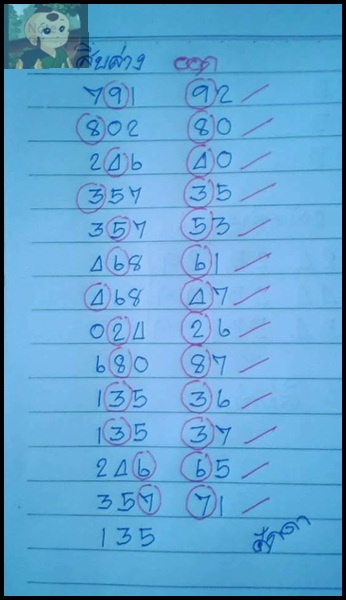 สิบล่าง ออก
791 92
802 80
246 40
357 35
357 53
468 61
468 47
024 26
680 87
135 36
135 37
246 65
357 71
135